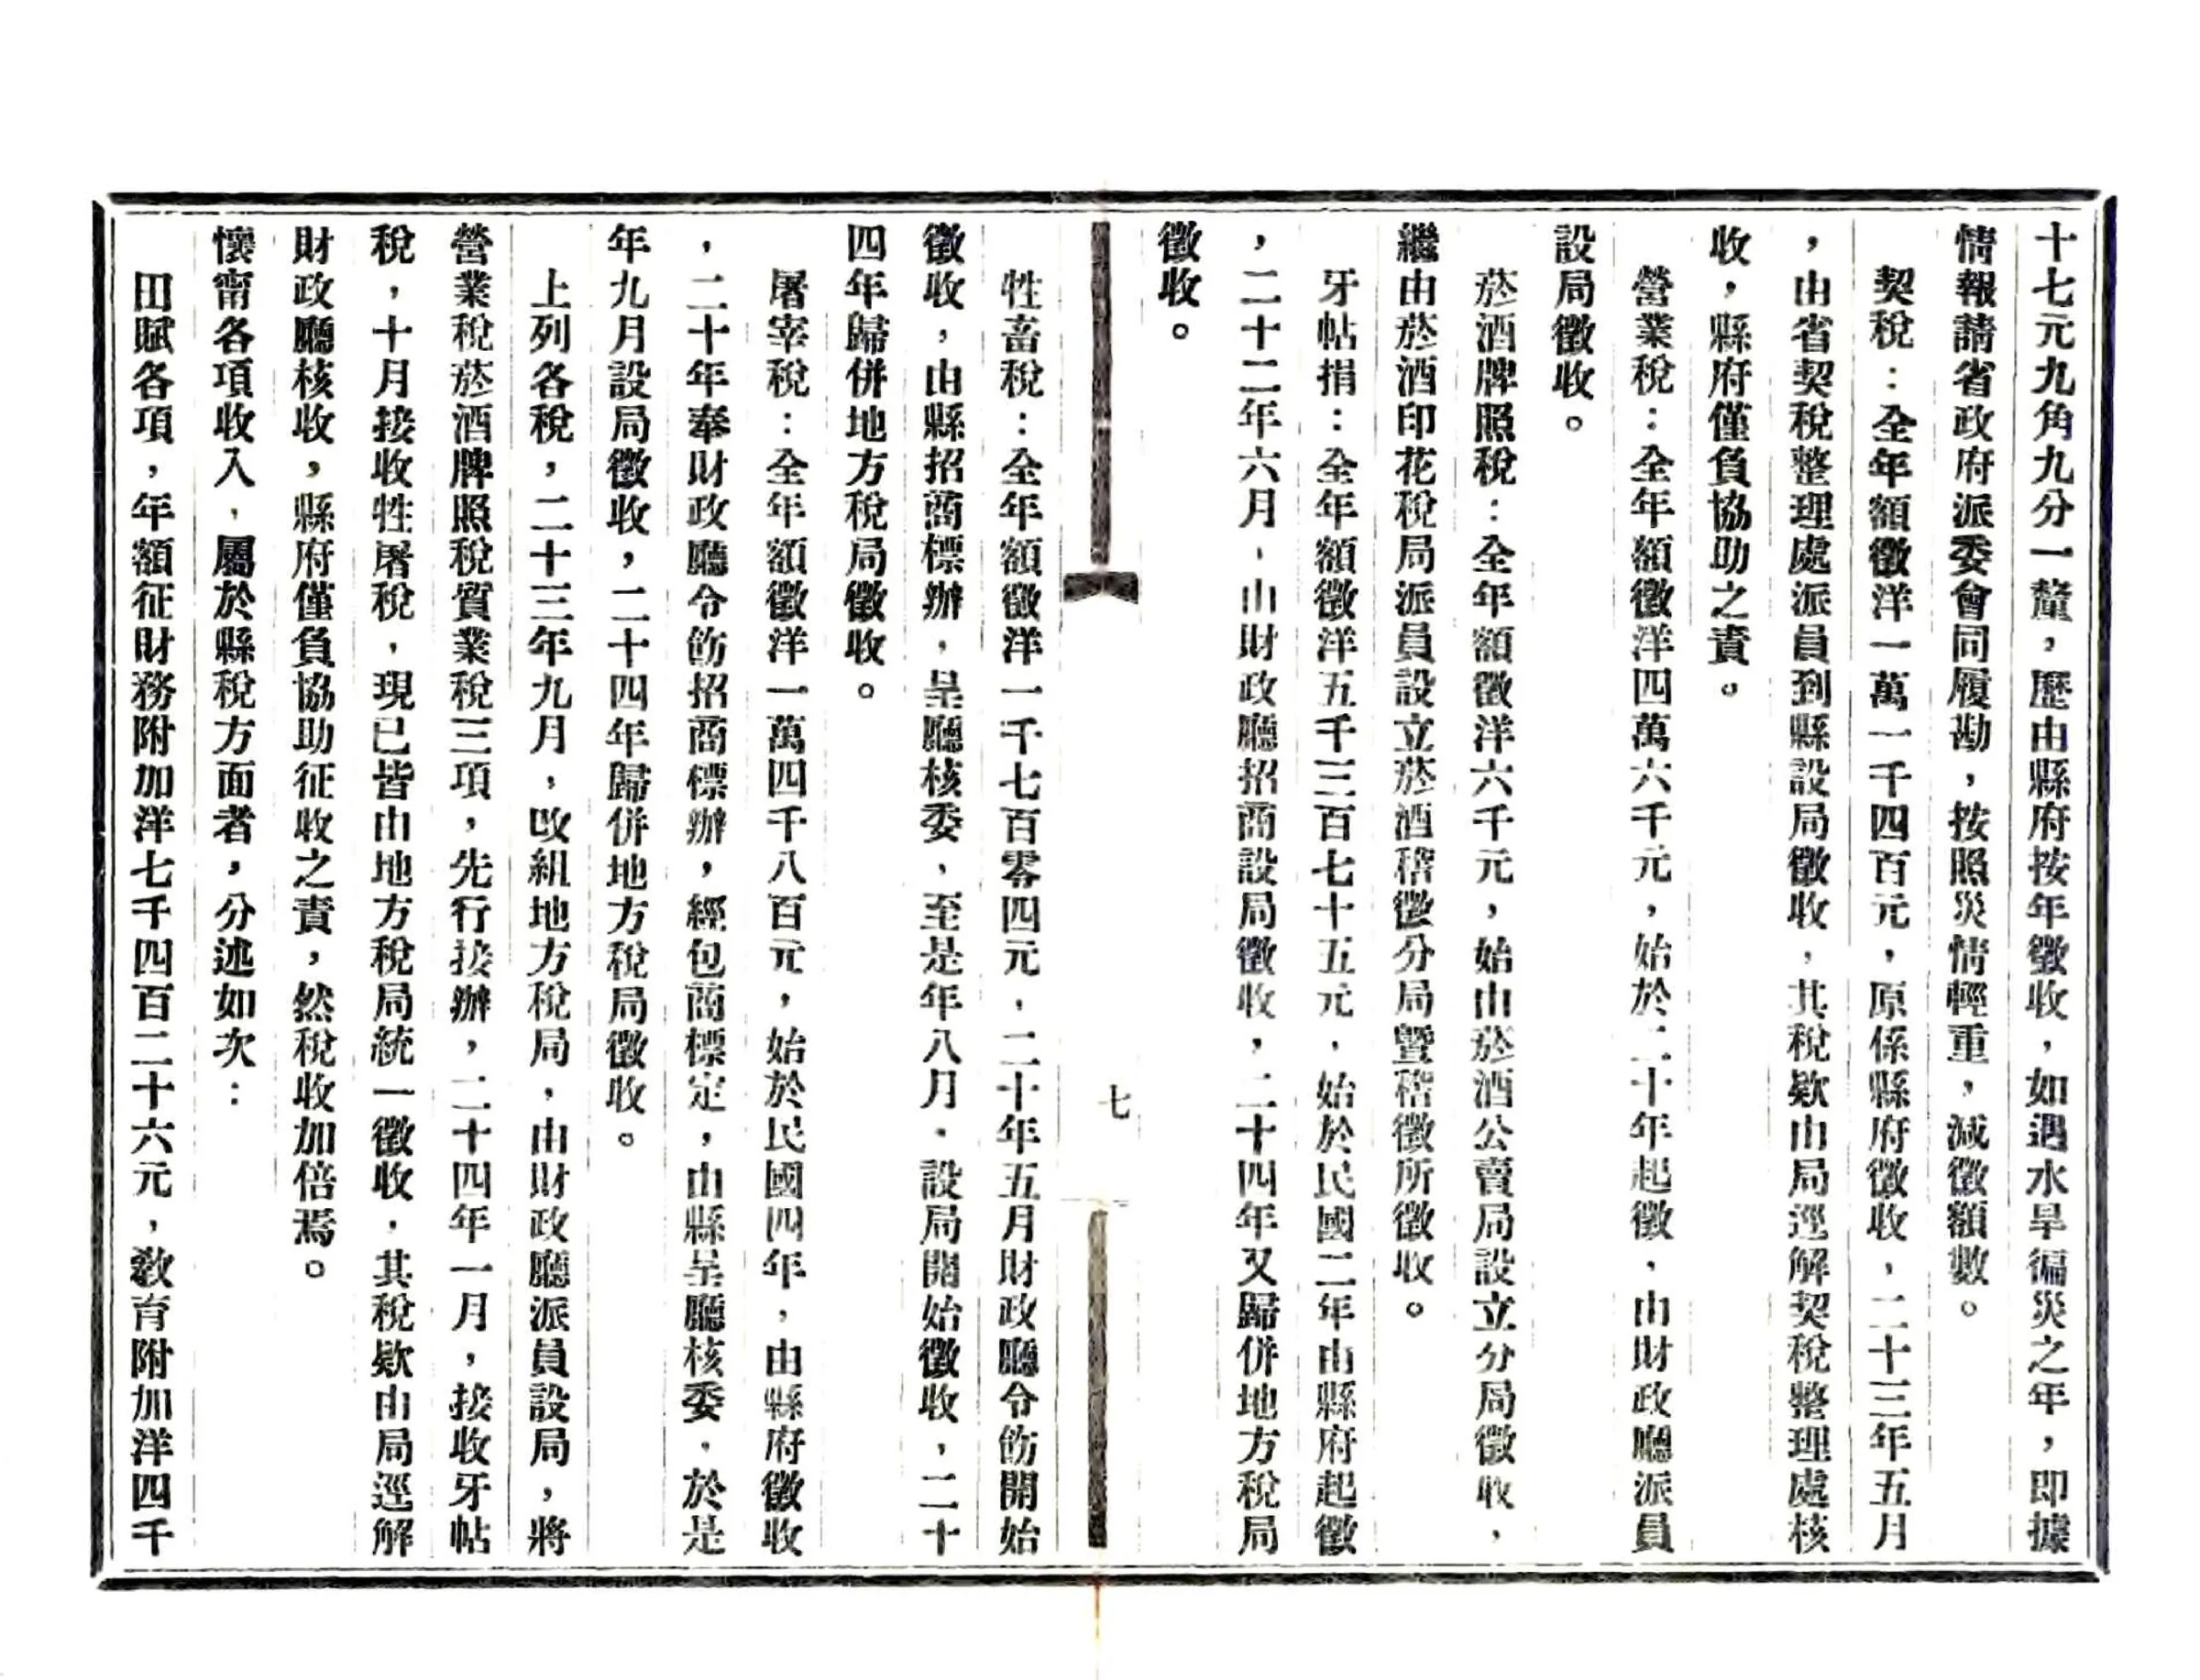 十七元九角九分一釐，歷由縣府按年徵收，如遇水旱徧災之年，即據
情報請省政府派委會同履勘，按照災情輕重，減徵額數。
契稅：全年額徵洋一萬一千四百元，原係縣府徵收，二十三年五月
，由省契稅整理處派員到縣設局徵收，其稅欵由局逕解契稅整理處核
收，縣府僅負協助之責。
營業稅：全年額徵洋四萬六千元，始於二十年起徵，由財政廳派員
設局徵收。
菸酒牌照稅：全年額徵洋六千元，始由菸酒公賣局設立分局徵收，
繼由菸酒印花稅局派員設立菸酒稽徵分局暨稽徵所徵收。
牙帖捐：全年額徵洋五千三百七十五元，始於民國二年由縣府起徵
，二十二年六月，由財政廳招商設局徵收，二十四年又歸併地方稅局
徵收。
七
牲畜稅：全年額徵洋一千七百零四元，二十年五月財政廳令飭開始
徵收，由縣招商標辦，呈廳核委，至是年八月，設局開始徵收，二十
四年歸併地方稅局徵收。
屠宰稅：全年額徵洋一萬四千八百元，始於民國四年，由縣府徵收
，二十年奉財政廳令飭招商標辦，經包商標定，由縣呈廳核委，於是
年九月設局徵收，二十四年歸併地方稅局徵收。
上列各稅，二十三年九月，改組地方稅局，由財政廳派員設局，將
營業稅菸酒牌照稅質業稅三項，先行接辦，二十四年一月，接收牙帖
稅，十月接收牲屠稅，現已皆由地方稅局統一徵收，其稅欵由局逕解
財政廳核收，縣府僅負協助征收之責，然稅收加倍焉。
懷甯各項收入，屬於縣稅方面者，分述如次：
田賦各項，年額征財務附加洋七千四百二十六元，敎育附加洋四千